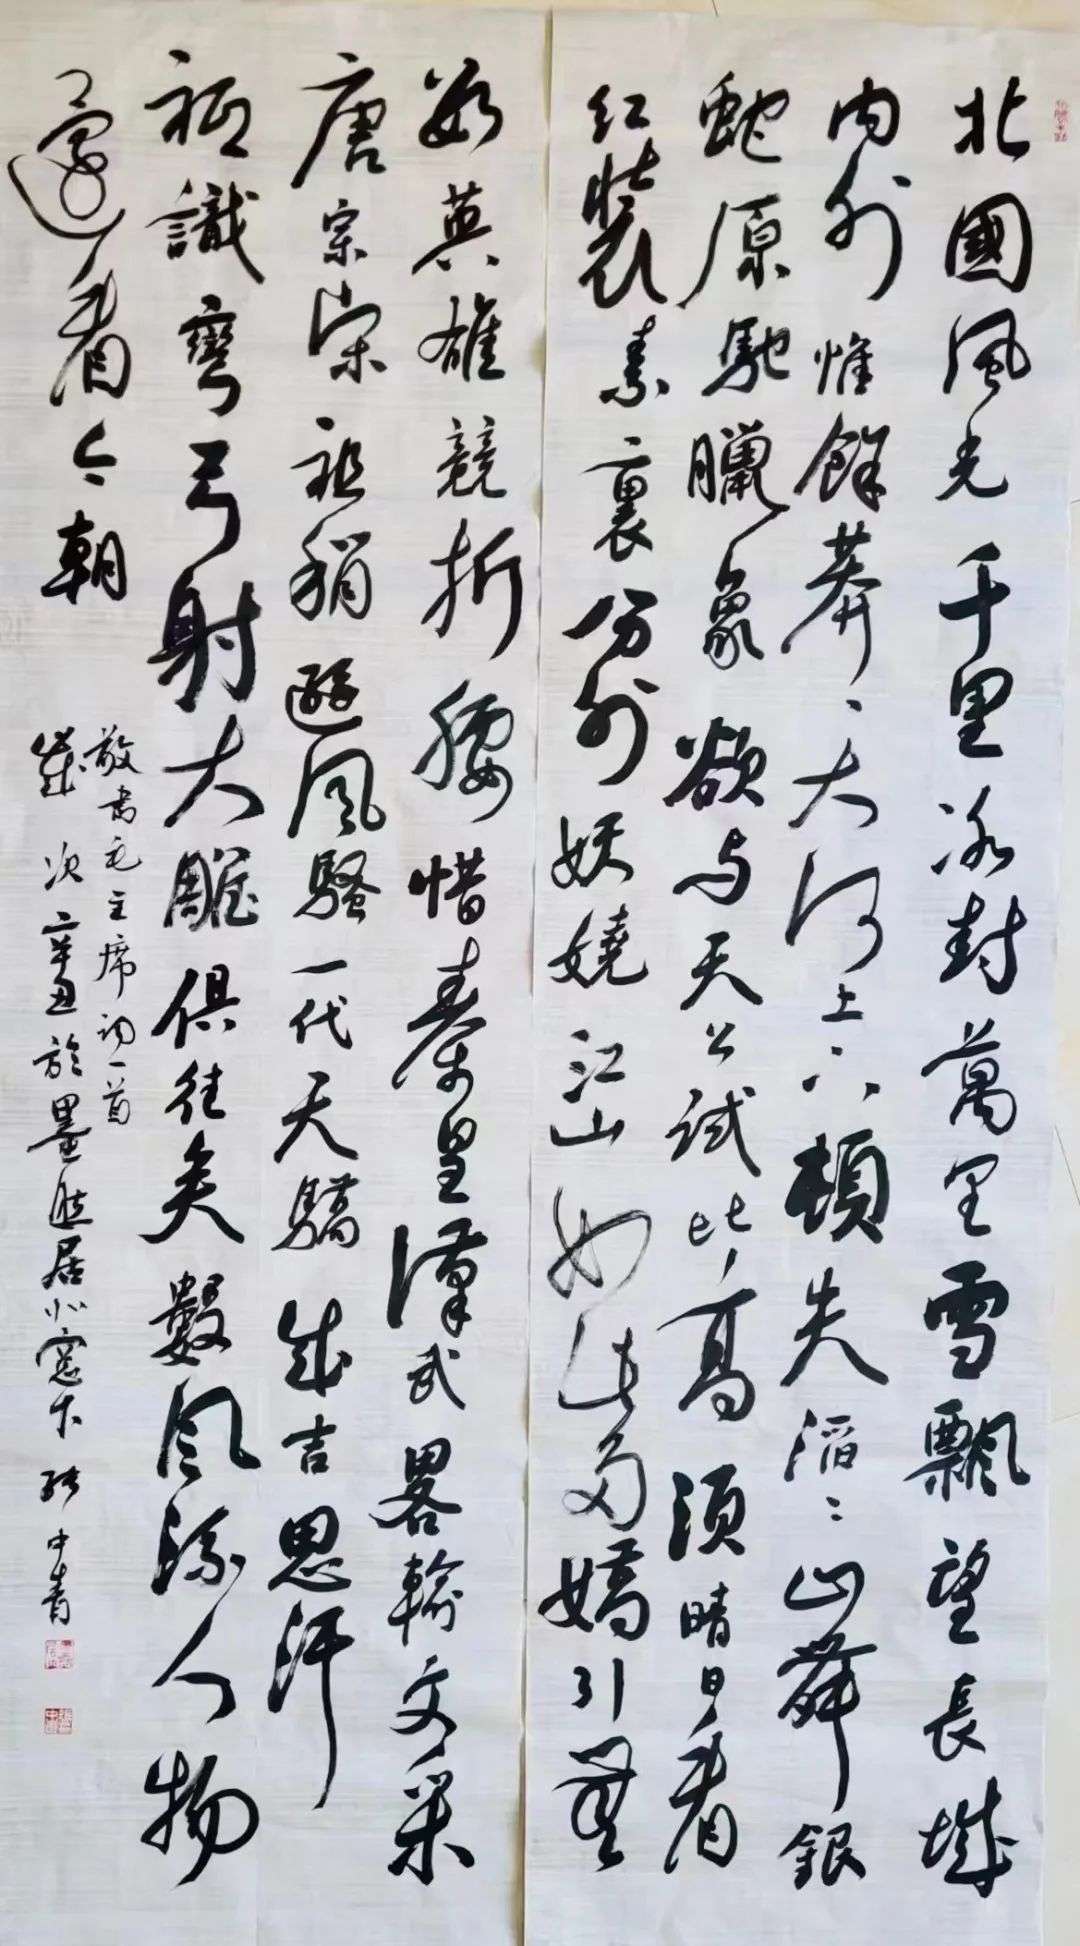 北國風光千里冰封萬里雪飄望長城
内外惟餘莽〻大河上下頓失滔〻山舞銀
蛇原馳臘象欲与天公試比高須晴日看
红裝素裹分外妖嬈江山如此多嬌引無
數英雄競折腰惜秦皇漢武畧輸文采
唐宗宋祖稍遜風騷一代天驕成吉思汗
祗識彎弓射大雕俱往矣數風流人物
還看今朝
敬書毛主席詞一首
歲次辛丑於墨居北窓下 张中青